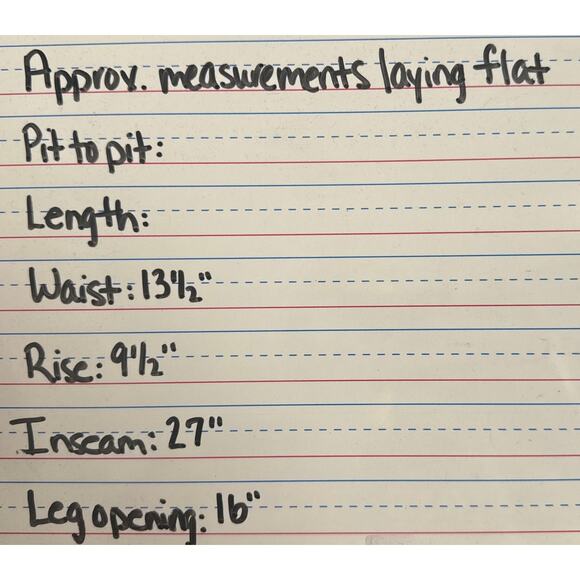 Approx. measurements laying flat
Pit to pit:
Length:
Waist: 13 1/2"
Rise: 9 1/2"
Inseam: 27"
Leg opening: 16"